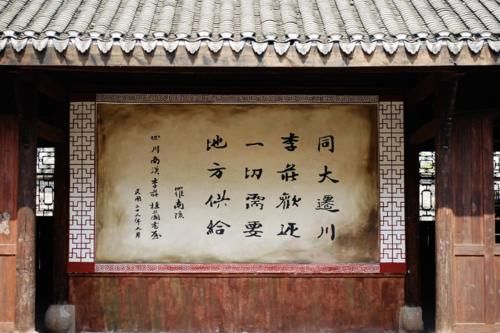 同大遷川
李莊歡迎
一切需要
地方供給
羅南陔
四川南溪李莊桂圖書
民國二十八年八月